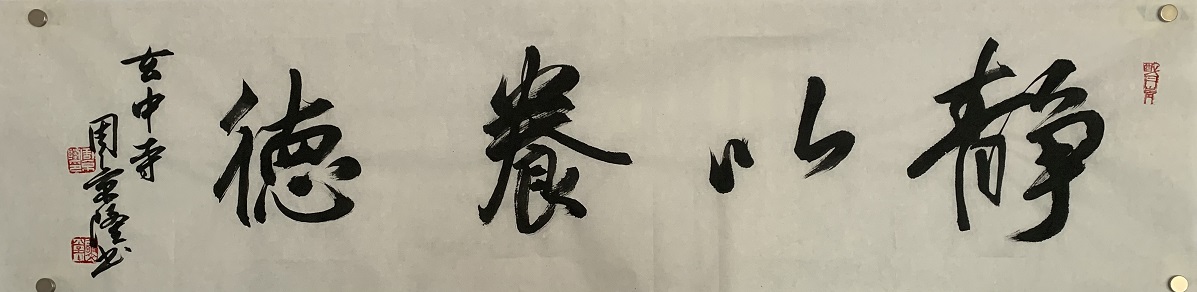 静以養德
玄中寺
周京隆书